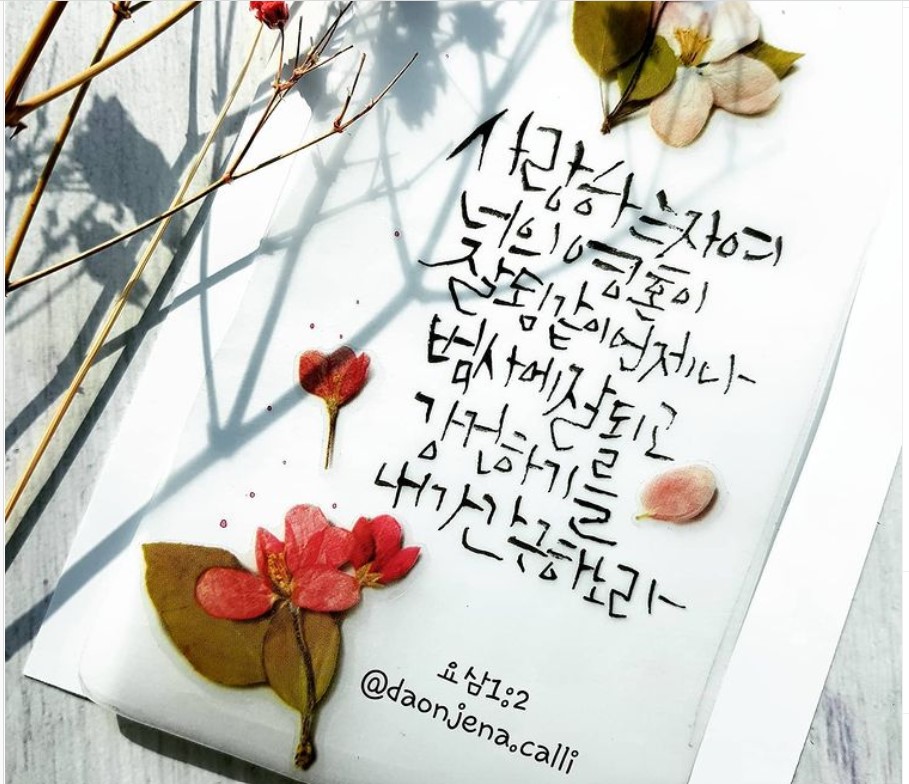 사랑하는자여
너의영혼이
잘됨같이언제나
범사에잘되고
강건하기를
내가간구하노라
요삼1:2
@daonjena.calli